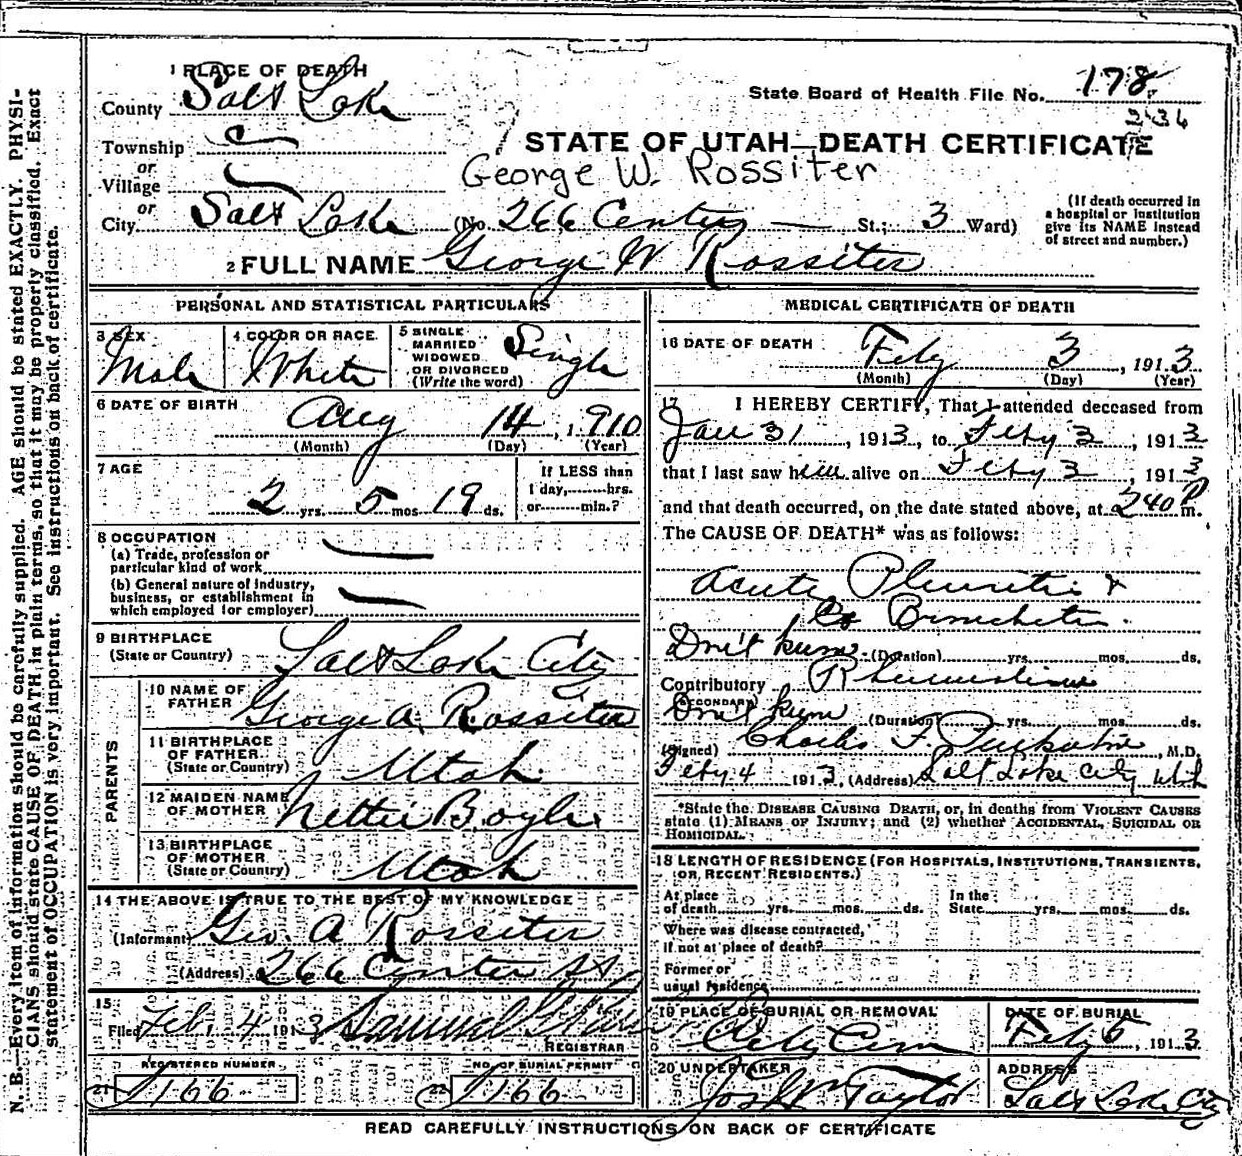 N. B.—Every item of information should be carefully supplied. AGE should be stated EXACTLY. PHYSI-
CIANS should state CAUSE OF DEATH in plain terms, so that it may be properly classified. Exact
statement of OCCUPATION is very important. See instructions on back of certificate.
1 PLACE OF DEATH
County Salt Lake
State Board of Health File No. 178
234
Township
or
Village
or
STATE OF UTAH—DEATH CERTIFICATE
George W. Rossiter
City Salt Lake (No. 266 Center St.; 3 Ward)
(If death occurred in
a hospital or institution
give its NAME instead
of street and number.)
2 FULL NAME George W Rossiter
PERSONAL AND STATISTICAL PARTICULARS
3 SEX
Male
4 COLOR OR RACE
White
5 SINGLE
MARRIED
WIDOWED
OR DIVORCED
(Write the word)
Single
6 DATE OF BIRTH
Aug 14, 1910
(Month) (Day) (Year)
7 AGE
2 yrs. 5 mos 19 ds.
If LESS than
1 day, hrs.
or min.?
8 OCCUPATION
(a) Trade, profession or
particular kind of work
(b) General nature of industry,
business, or establishment in
which employed (or employer)
9 BIRTHPLACE
(State or Country)
Salt Lake City
PARENTS
10 NAME OF
FATHER
George A. Rossiter
11 BIRTHPLACE
OF FATHER
(State or Country)
Utah
12 MAIDEN NAME
OF MOTHER
Nettie Boyle
13 BIRTHPLACE
OF MOTHER
(State or Country)
Utah
14 THE ABOVE IS TRUE TO THE BEST OF MY KNOWLEDGE
(Informant) Geo. A Rossiter
(Address) 266 Center St
15
Filed Feb. 4 1913 Samuel
REGISTRAR
REGISTERED NUMBER
21 J166
NO. OF BURIAL PERMIT
22 J166
MEDICAL CERTIFICATE OF DEATH
16 DATE OF DEATH
Feby 3, 1913
(Month) (Day) (Year)
17 I HEREBY CERTIFY, That I attended deceased from
Jan 31, 1913, to Feby 3, 1913
that I last saw him alive on Feby 3, 1913
and that death occurred, on the date stated above, at 240 P m.
The CAUSE OF DEATH* was as follows:
Acute Pleuritis &
Bronchitis.
Don't know (Duration) yrs. mos. ds.
Contributory Rheumatism
(SECONDARY)
Don't know (Duration) yrs. mos. ds.
(Signed) Charles F. , M.D.
Feby 4 1913, (Address) Salt Lake City Utah
*State the DISEASE CAUSING DEATH, or, in deaths from VIOLENT CAUSES
state (1) MEANS OF INJURY; and (2) whether ACCIDENTAL, SUICIDAL OR
HOMICIDAL.
18 LENGTH OF RESIDENCE (FOR HOSPITALS, INSTITUTIONS, TRANSIENTS,
OR RECENT RESIDENTS.)
At place
of death yrs. mos. ds.
In the
State yrs. mos. ds.
Where was disease contracted,
if not at place of death?
Former or
usual residence
19 PLACE OF BURIAL OR REMOVAL
City Cem
DATE OF BURIAL
Feby 5, 1913
20 UNDERTAKER
Jos Wm Taylor
ADDRESS
Salt Lake City
READ CAREFULLY INSTRUCTIONS ON BACK OF CERTIFICATE